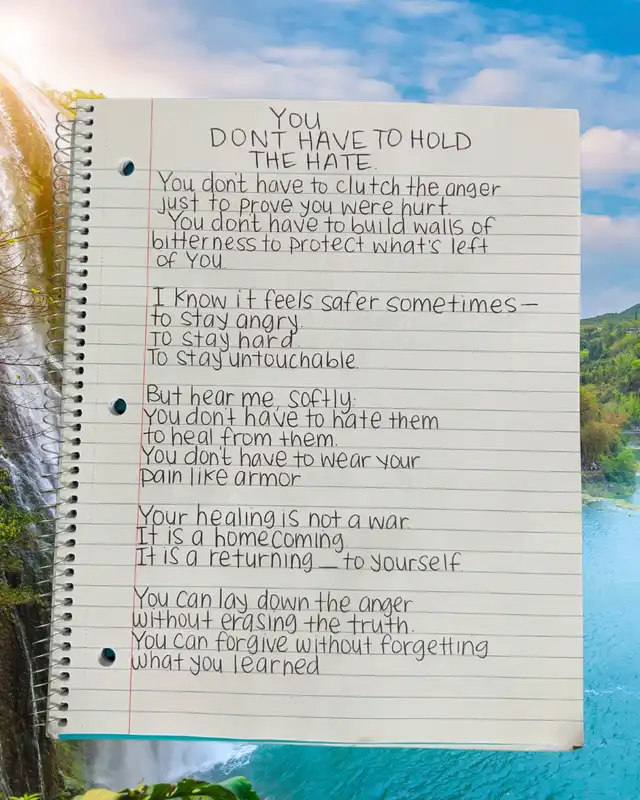 YOU
DONT HAVE TO HOLD
THE HATE.
You don't have to clutch the anger
just to prove you were hurt.
You don't have to build walls of
bitterness to protect what's left
of YOU
I know it feels safer sometimes—
to stay angry.
To stay hard.
To stay untouchable.
But hear me, softly:
You don't have to hate them
to heal from them.
You don't have to wear your
pain like armor
Your healing is not a war.
It is a homecoming
It is a returning — to yourself.
You can lay down the anger
without erasing the truth.
You can forgive without forgetting
what you learned